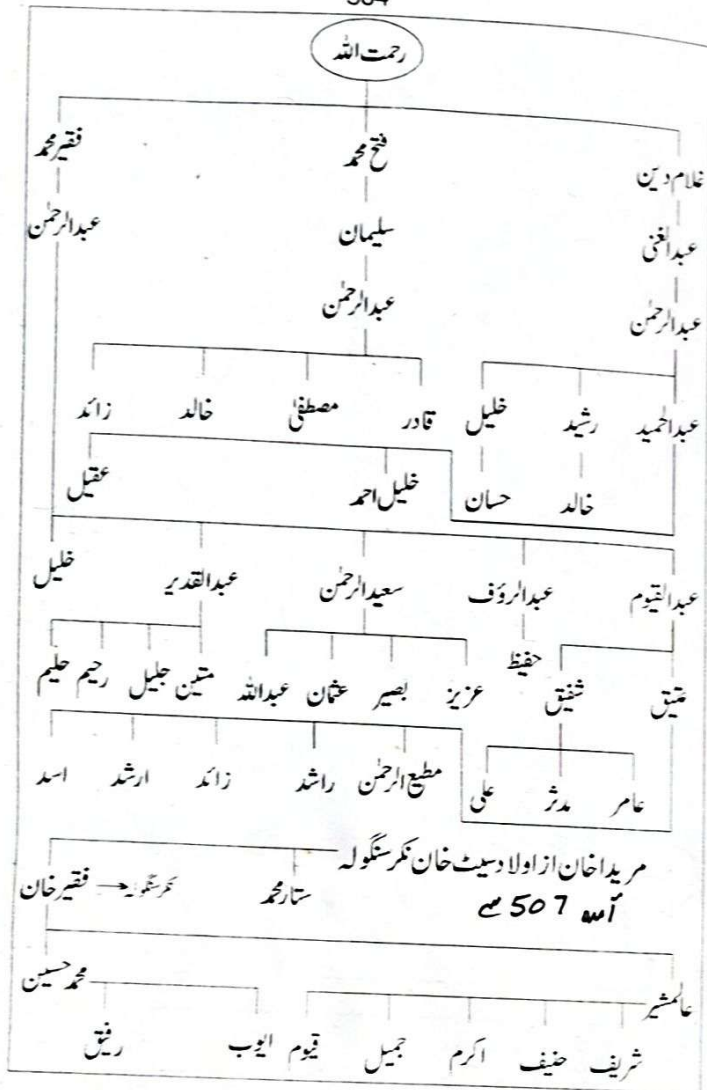 رحمت اللہ
غلام دین فتح محمد فقیر محمد
عبدالغنی سلیمان عبدالرحمٰن
عبدالرحمٰن عبدالرحمٰن
عبدالحمید رشید خلیل قادر مصطفیٰ خالد زائد
خالد حسان خلیل احمد عقیل
عبدالقیوم عبدالرؤف سعیدالرحمٰن عبدالقدیر خلیل
عتیق شفیق حفیظ عزیز بصیر عثمان عبداللہ متین جلیل رحیم حلیم
عامر مدثر علی مطیع الرحمٰن راشد زائد ارشد اسد
مریداخان از اولاد سیٹ خان نکر سنگولہ
ستار محمد نکر سنگولہ فقیر خان
507 سے
عالمشیر محمد حسین
شریف حنیف اکرم جمیل قیوم ایوب رفیق